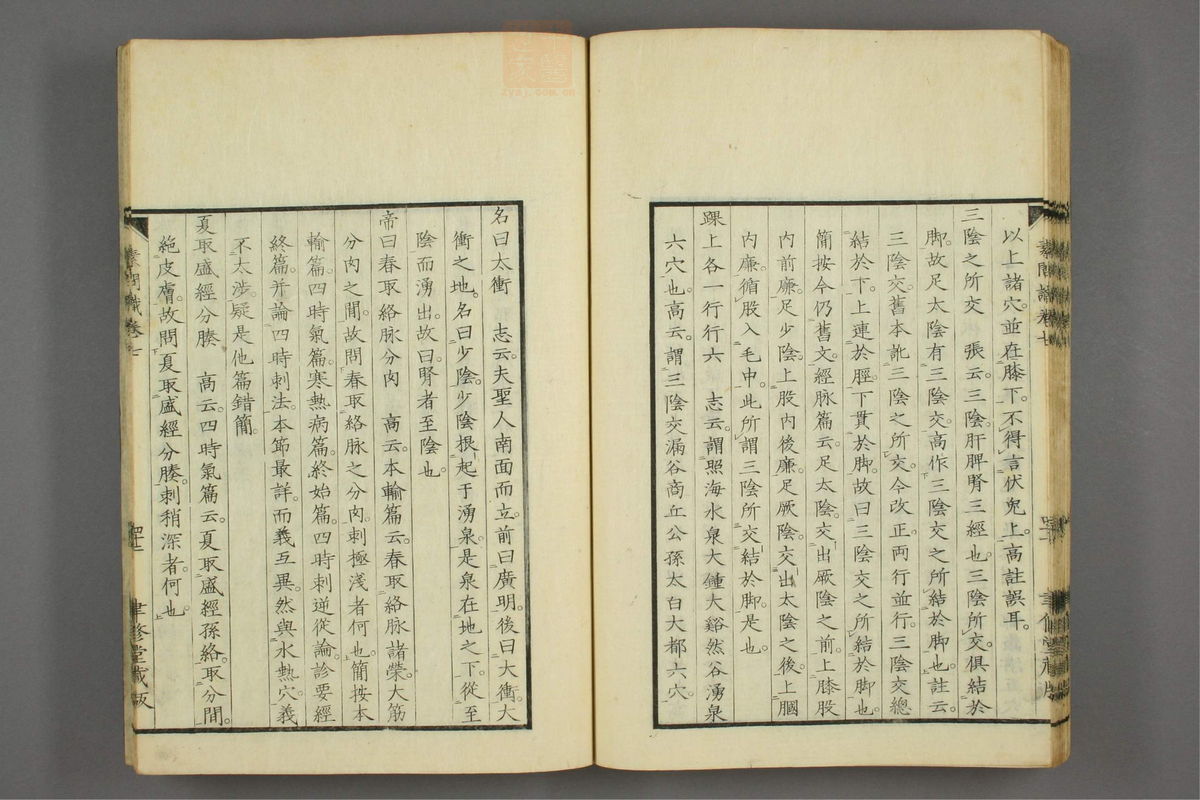 以上諸穴。並在膝下。不得言伏兔上。高註誤耳。
三陰之所交　張云。三陰。肝脾腎三經也。三陰所交。俱結於
脚。故足太陰有三陰交。高作三陰交之所結於脚也。註云。
三陰交。舊本訛三陰之所交。今改正。兩行並行。三陰交總
結於下。上連於脛。下貫於脚。故曰三陰交之所結於脚也。
簡按今仍舊文。經脉篇云。足太陰。交出厥陰之前。上膝股
內前廉。足少陰。上股內後廉。足厥陰。交出太陰之後。上膕
內廉。循股入毛中。此所謂三陰所交結於脚是也。
踝上各一行行六　志云。謂照海水泉大鍾大谿然谷湧泉
六穴也。高云。謂三陰交漏谷商丘公孫太白大都六穴。
素問識卷七
聿修堂藏版
名曰太衝　志云。夫聖人南面而立。前曰廣明。後曰大衝。大
衝之地。名曰少陰。少陰根起于湧泉。是泉在地之下。從至
陰而湧出。故曰。腎者至陰也。
帝曰春取絡脉分肉　高云。本輸篇云。春取絡脉諸榮。大筋
分肉之間。故問春取絡脉之分肉。刺極淺者何也。簡按本
輸篇。四時氣篇。寒熱病篇。終始篇。四時刺逆從論。診要經
終篇。并論四時刺法。本節最詳。而義互異。然與水熱穴義
不太涉。疑是他篇錯簡。
夏取盛經分腠　高云。四時氣篇云。夏取盛經孫絡。取分間。
絶皮膚。故問夏取盛經分腠。刺稍深者。何也。
素問識卷七
聿修堂藏版